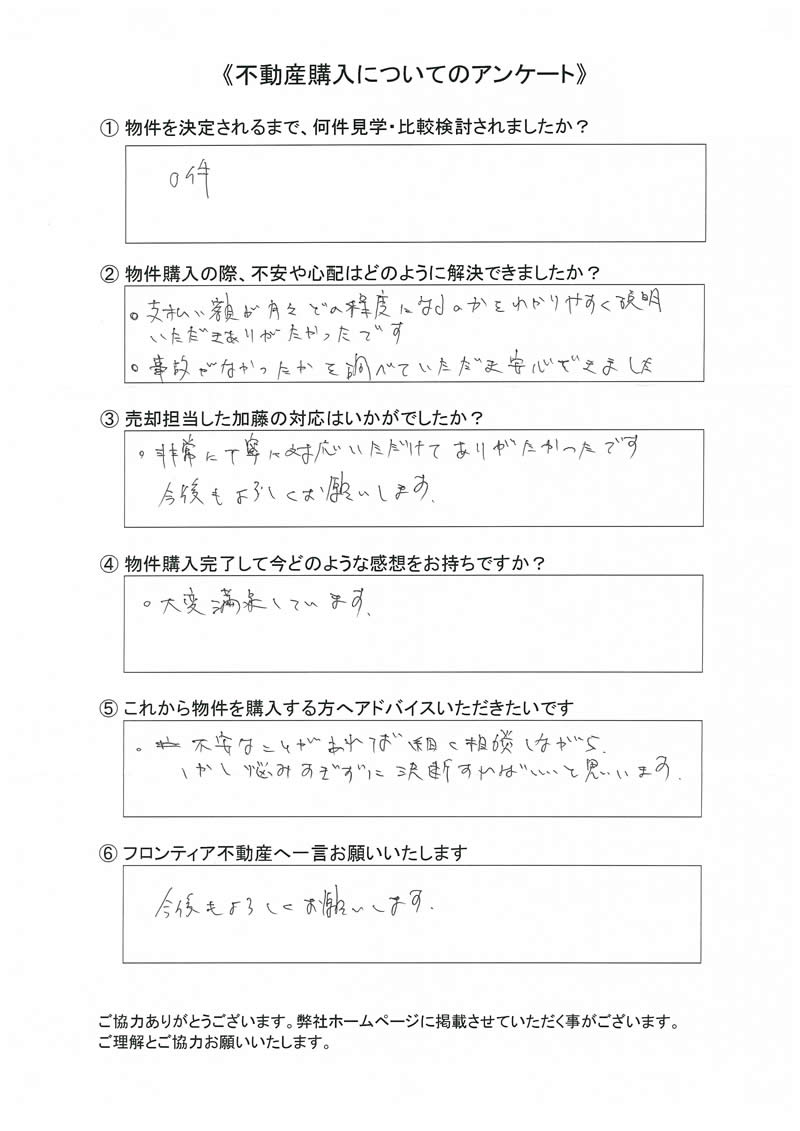 《不動産購入についてのアンケート》
① 物件を決定されるまで、何件見学・比較検討されましたか？
0件
② 物件購入の際、不安や心配はどのように解決できましたか？
○支払い額が月々どの程度になるのかをわかりやすく説明
いただきありがたかったです
○事故がなかったかを調べていただき安心できました
③ 売却担当した加藤の対応はいかがでしたか？
○非常に丁寧に対応いただけてありがたかったです
今後もよろしくお願いします.
④ 物件購入完了して今どのような感想をお持ちですか？
○大変満足しています.
⑤ これから物件を購入する方へアドバイスいただきたいです
○不安なことがあれば細く相談しながら.
しかし悩みすぎずに決断すればいいと思います.
⑥ フロンティア不動産へ一言お願いいたします
今後もよろしくお願いします.
ご協力ありがとうございます。弊社ホームページに掲載させていただく事がございます。
ご理解とご協力お願いいたします。